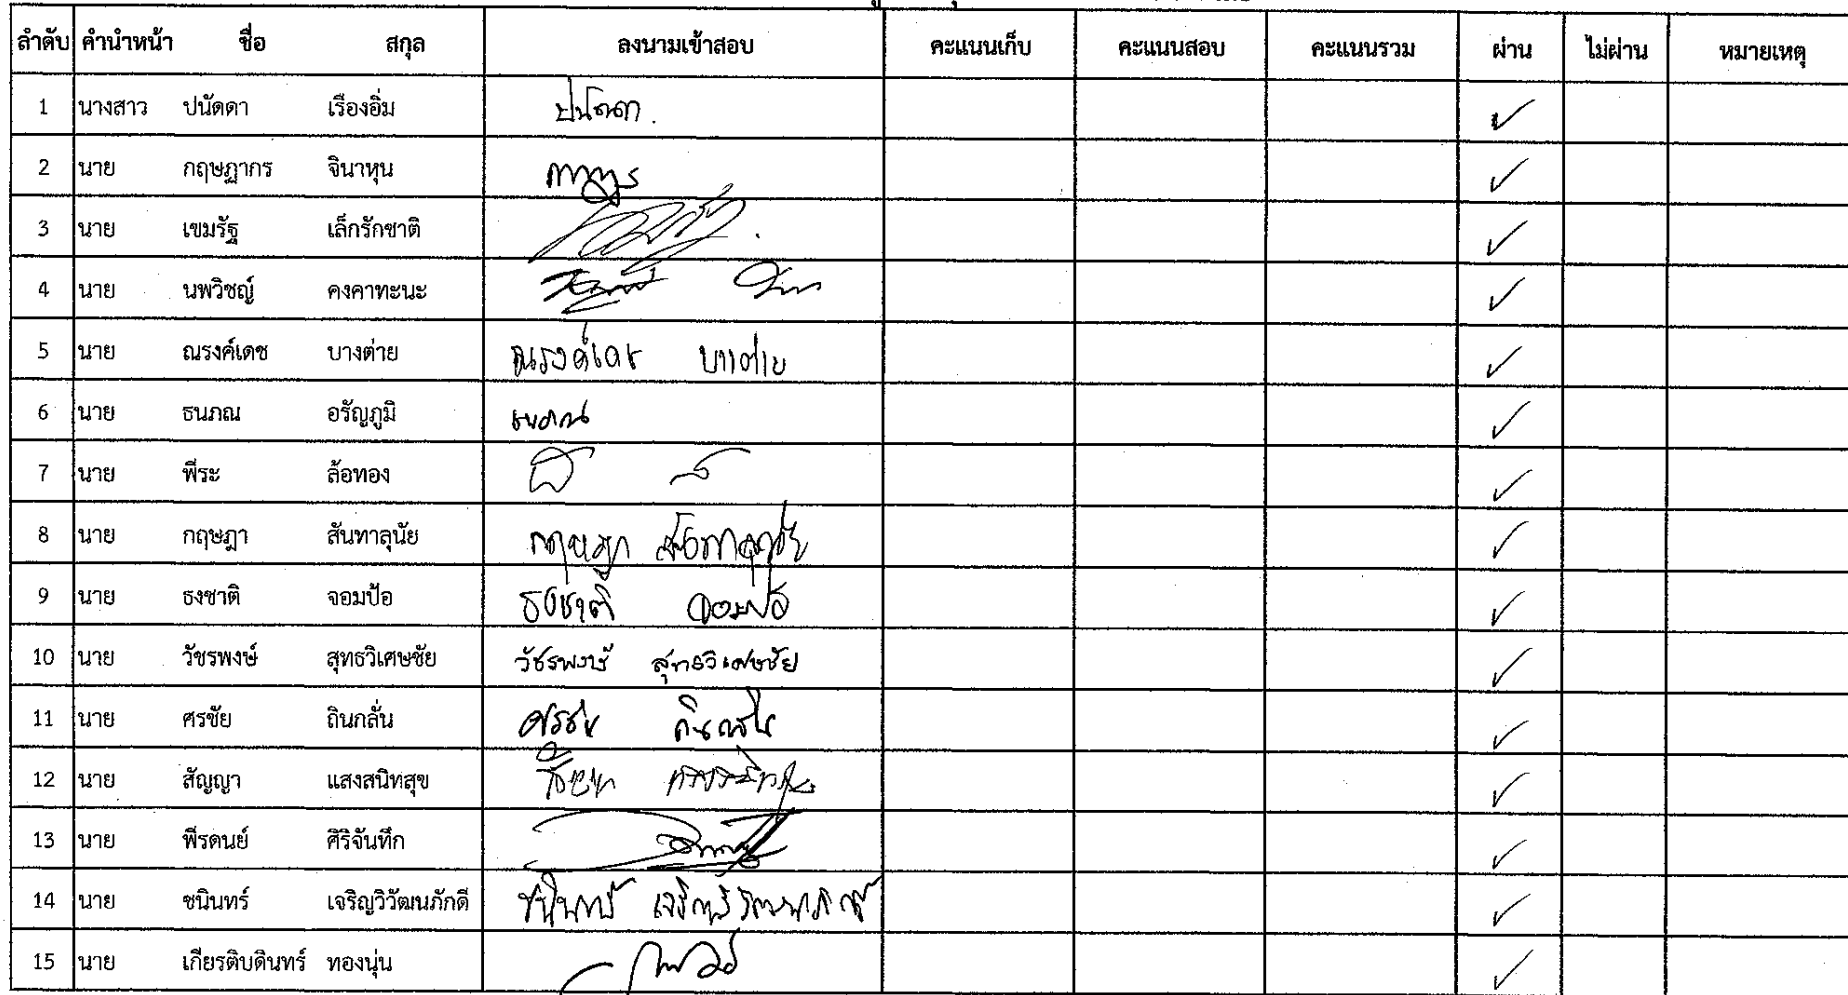 ลำดับ คำนำหน้า ชื่อ สกุล ลงนามเข้าสอบ คะแนนเก็บ คะแนนสอบ คะแนนรวม ผ่าน ไม่ผ่าน หมายเหตุ
1 นางสาว ปนัดดา เรืองอิ่ม ปนัดดา. ✓
2 นาย กฤษฎากร จินาหุน ✓
3 นาย เขมรัฐ เล็กรักชาติ ✓
4 นาย นพวิชญ์ คงคาทะนะ ✓
5 นาย ณรงค์เดช บางต่าย ณรงค์เดช บางต่าย ✓
6 นาย ธนภณ อรัญภูมิ ธนภณ ✓
7 นาย พีระ ล้อทอง ✓
8 นาย กฤษฎา สันทาลุนัย กฤษฎา สันทาลุนัย ✓
9 นาย ธงชาติ จอมป้อ ธงชาติ จอมป้อ ✓
10 นาย วัชรพงษ์ สุทธวิเศษชัย วัชรพงษ์ สุทธวิเศษชัย ✓
11 นาย ศรชัย ถินกลั่น ศรชัย ถินกลั่น ✓
12 นาย สัญญา แสงสนิทสุข ✓
13 นาย พีรดนย์ ศิริจันทึก ✓
14 นาย ชนินทร์ เจริญวิวัฒนภักดี ชนินทร์ ✓
15 นาย เกียรติบดินทร์ ทองนุ่น ✓